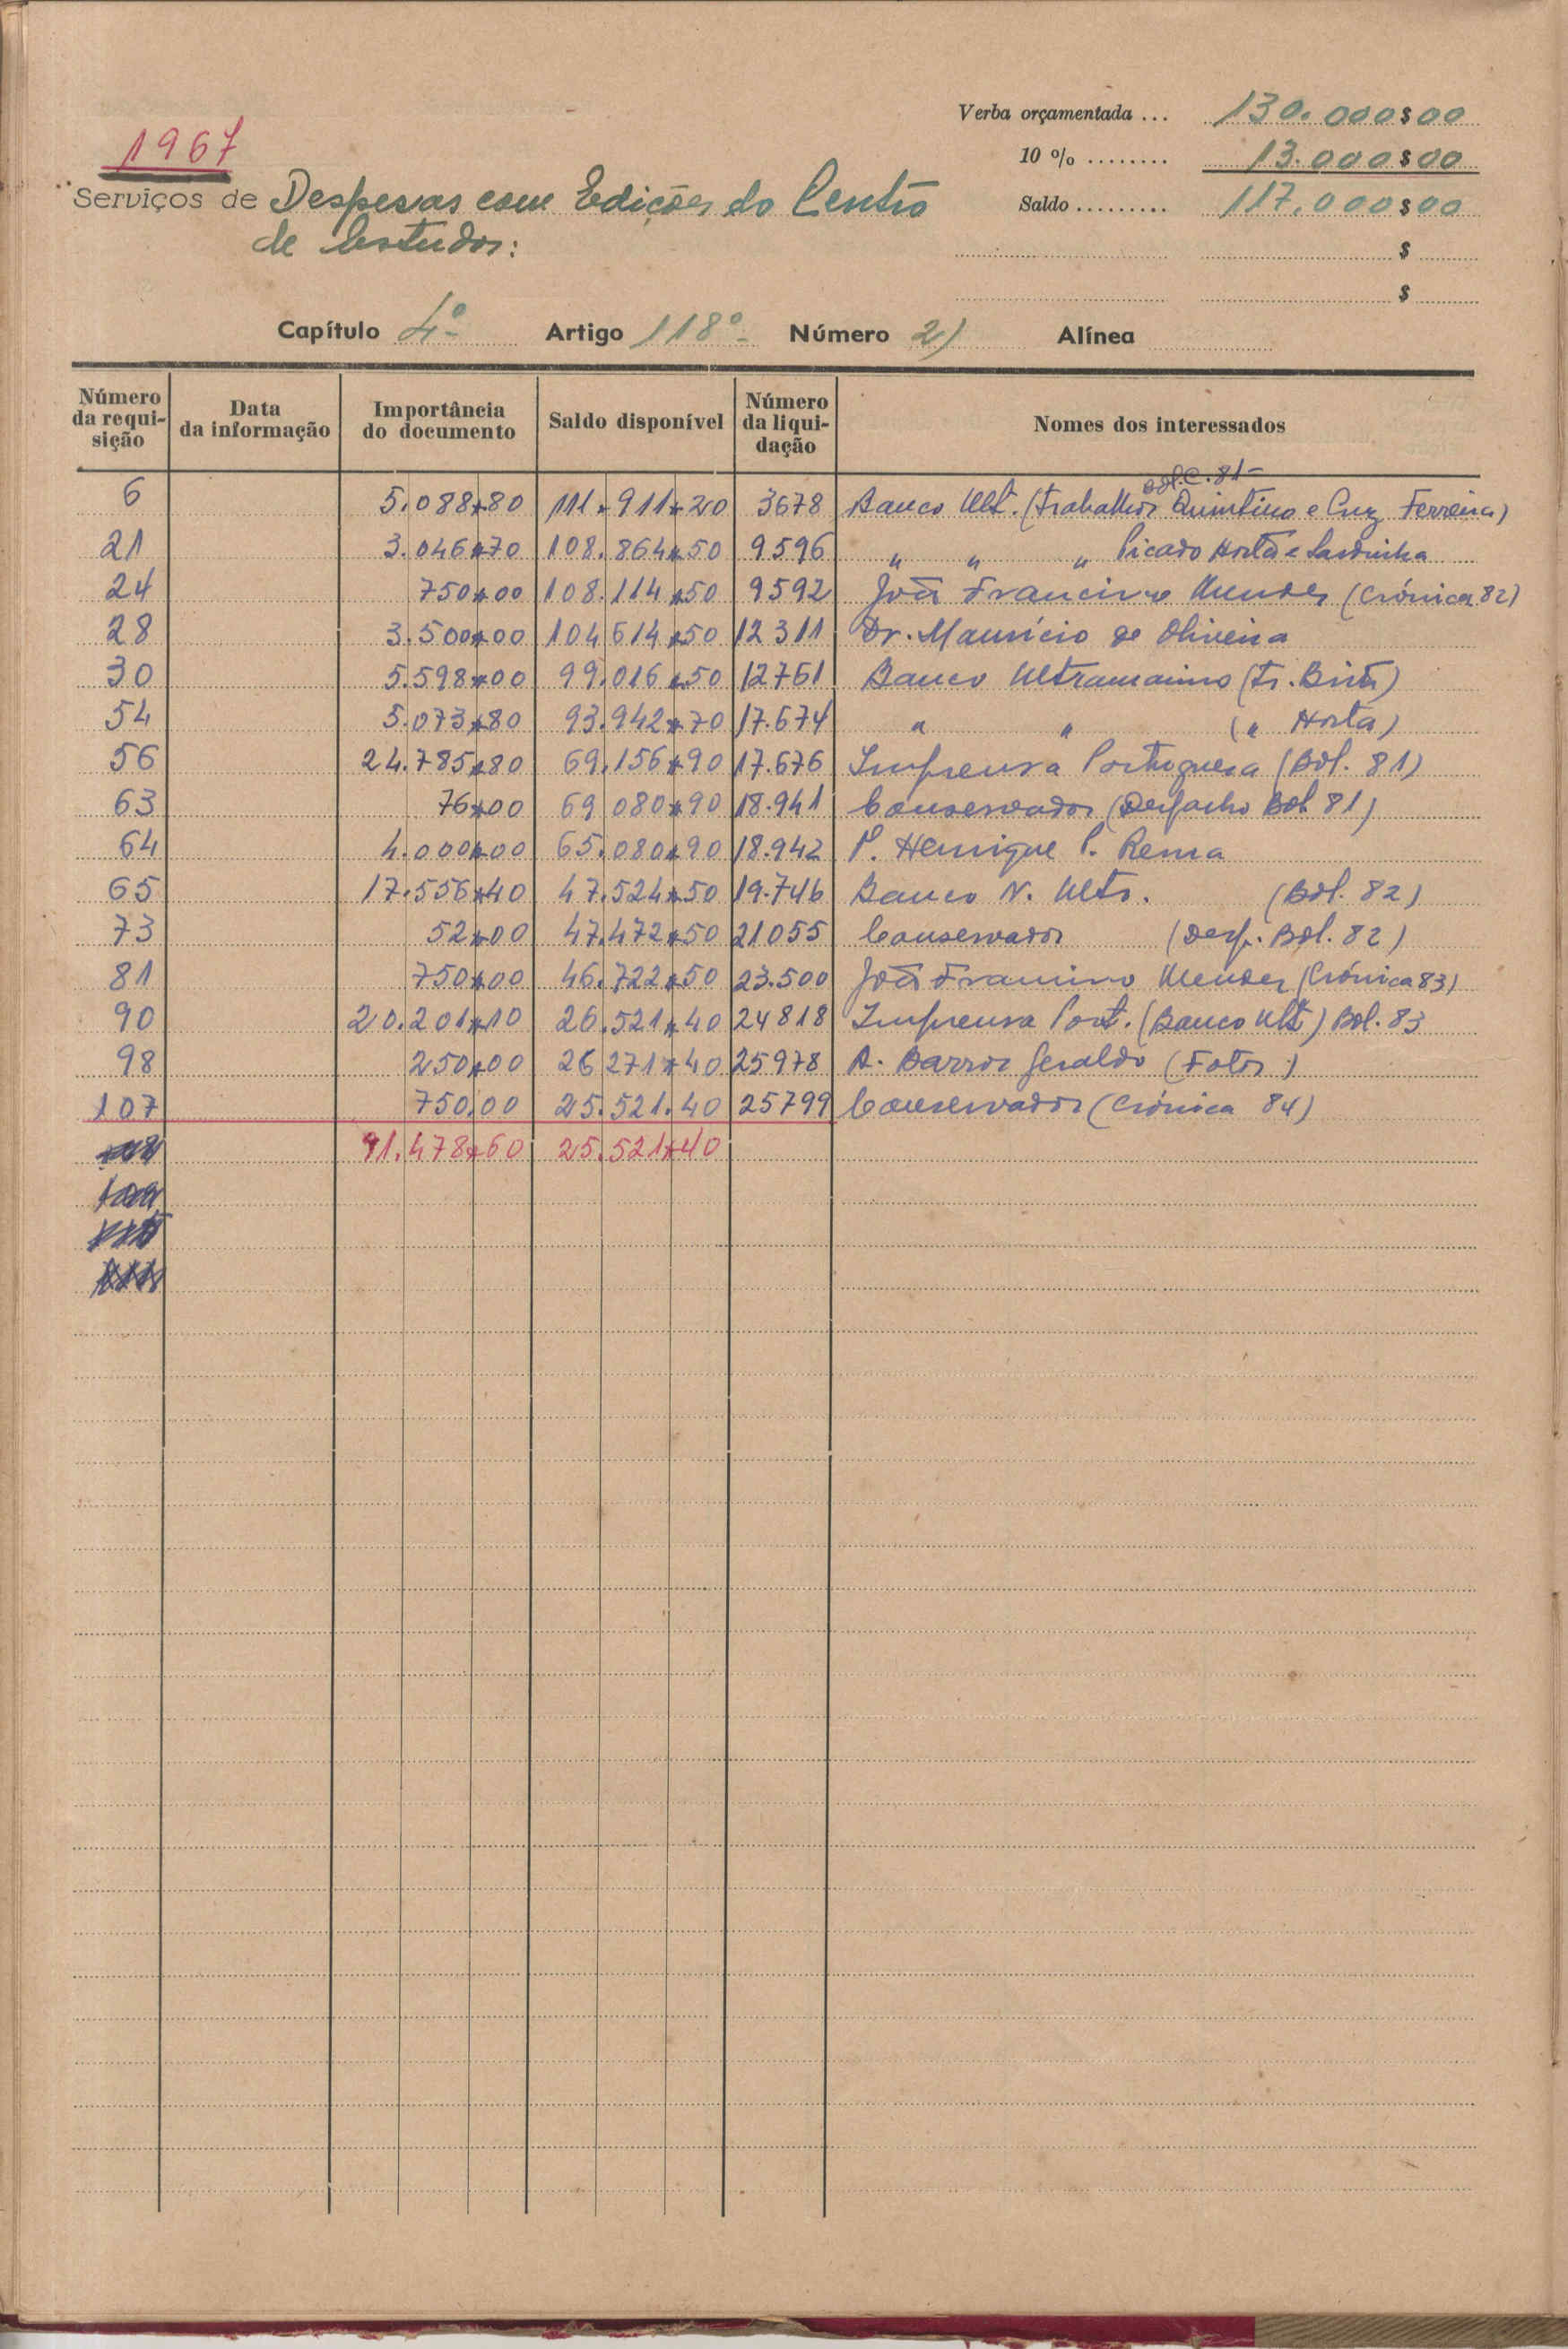 1967
Verba orçamentada ... 130.000$00
10 % ........ 13.000$00
Serviços de Despesas com Edições do Centro
de Estudos:
Saldo ......... 117.000$00
$
$
Capítulo 4º Artigo 118º Número 2) Alínea
Número da requisição Data da informação Importância do documento Saldo disponível Número da liquidação Nomes dos interessados
Bol.C.81-
6 5.088$80 111.911$20 3678 Banco Ult. (trabalhos Quintino e Cruz Ferreira)
21 3.046$70 108.864$50 9596 " " " Picado Horta e Sardinha
24 750$00 108.114$50 9592 João Francisco Mendes (Crónica 82)
28 3.500$00 104614$50 12311 Dr. Maurício de Oliveira
30 5.598$00 99.016$50 12761 Banco Ultramarino (tr. Brito)
54 5.073$80 93.942$70 17.674 " " (" Horta)
56 24.785$80 69.156$90 17.676 Imprensa Portuguesa (Bol. 81)
63 76$00 69080$90 18.941 Conservador (Despacho Bol. 81)
64 4.000$00 65.080$90 18.942 P. Henrique P. Rema
65 17.556$40 47.524$50 19.746 Banco N. Ultr. (Bol. 82)
73 52$00 47.472$50 21055 Conservador (Desp. Bol. 82)
81 750$00 46.722$50 23.500 João Francisco Mendes (Crónica 83)
90 20.201$10 26.521$40 24818 Imprensa Port. (Banco Ult) Bol. 83
98 250$00 26271$40 25978 A. Barros Geraldo (Fotos)
107 750.00 25.521.40 25799 Conservador (Crónica 84)
91.478$60 25.521$40
109